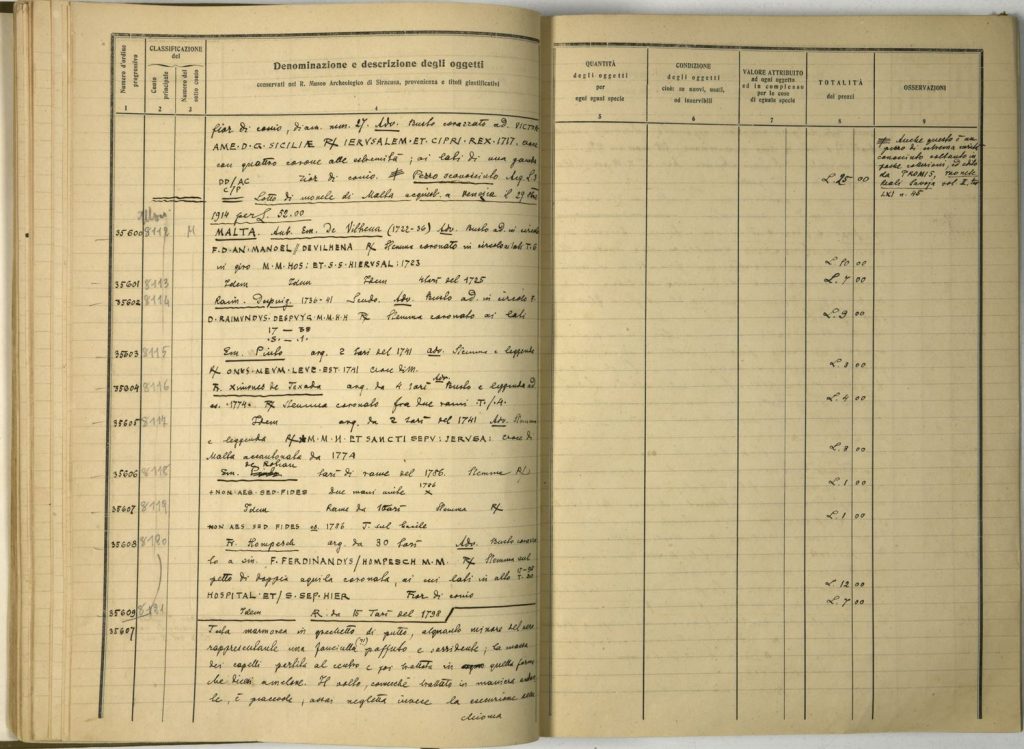 Numero d'ordine progressivo
CLASSIFICAZIONE del
Conto principale
Numero del sotto conto
Denominazione e descrizione degli oggetti
conservati nel R. Museo Archeologico di Siracusa, provenienza e titoli giustificativi
1 2 3 4
QUANTITÀ degli oggetti per ogni ogni specie
CONDIZIONE degli oggetti cioè: se nuovi, usati, od inservibili
VALORE ATTRIBUITO ad ogni oggetto ed in complesso per le cose di eguale specie
TOTALITÀ dei prezzi
OSSERVAZIONI
5 6 7 8 9
fior di conio, diam. mm. 27. Adv. Busto corazzato ad. VICTOR
AME. D. G. SICILIÆ R/ IERVSALEM. ET. CIPRI. REX. 1717.
con quattro corone alle estremità; ai lati di una
DD/AC C/P Fior di conio. Pezzo sconosciuto. Arg. L. 25 00
Lotto di monete di Malta acquist. a Venezia il 29
1914 per L. 52.00
35600 8112 M MALTA. Ant. Em. De Vilhena (1722-36) Adv. Busto ad. in circolo
F. D. AN. MANOEL // DEVILHENA R/ Stemma coronato in circolo ai lati T. 6
in giro M. M. HOS: ET. S. S. HIERVSAL: 1723 L. 10 00
35601 8113 Idem Idem Idem 4 tarì del 1725 L. 7 00
35602 8114 Raim. Despuig. 1736-41 Scudo. Adv. Busto ad. in circolo F.
D. RAIMUNDVS. DESPVYG. M. M. H. H R/ Stemma coronato ai lati L. 9 00
17 — 38
.S. — .1.
35603 8115 Em. Pinto arg. 2 tarì del 1741 adv. Stemma e leggenda
R/ ONVS. MEVM. LEVE. EST. 1741 Croce di M. L. 8 00
35604 8116 F. Ximenes de Texada arg. da 4 tarì Adv. Busto e leggenda ad
es. 1774. R/ Stemma coronato fra due rami T. / 4. L. 4 00
35605 8117 Idem arg. da 2 tarì del 1741 Adv. Stemma
e leggenda R/ M. M. H. ET SANCTI SEPV: IERVSA: Croce di L. 8 00
Malta accantonata da 1774
35606 8118 Em. de Rohan tarì di rame del 1786. Stemma R/ L. 1 00
+ NON. AES. SED. FIDES due mani unite 1786
35607 8119 Idem Rame da 1 tarì Stemma R/ L. 1 00
NON AES. SED. FIDES es. 1786
35608 8120 F. Hompesch arg. da 30 tarì Adv. Busto
a sin. F. FERDINANDVS / HOMPESCH M. M. R/ Stemma sul
petto di doppia aquila coronata, ai cui lati in alto T. 30
HOSPITAL ET / S. SEP. HIER Fior di conio L. 12 00
35609 8121 Idem AR. da 15 Tarì del 1798 L. 7 00
35607 Testa marmorea in di putto, alquanto minore del vero
rappresentante una fanciulla (?) paffuta e sorridente; la massa
dei capelli partita al centro e poi trattata in quella forma
che dicesi a melone. Il volto, comechè trattato in maniera
è piacevole, assai negletta invece la esecuzione della
chioma
Anche questo è un
pezzo di
conosciuto soltanto in
poche collezioni, ed edito
da PROMIS, monete
Reali Savoja vol. II, tav.
LXI n. 45